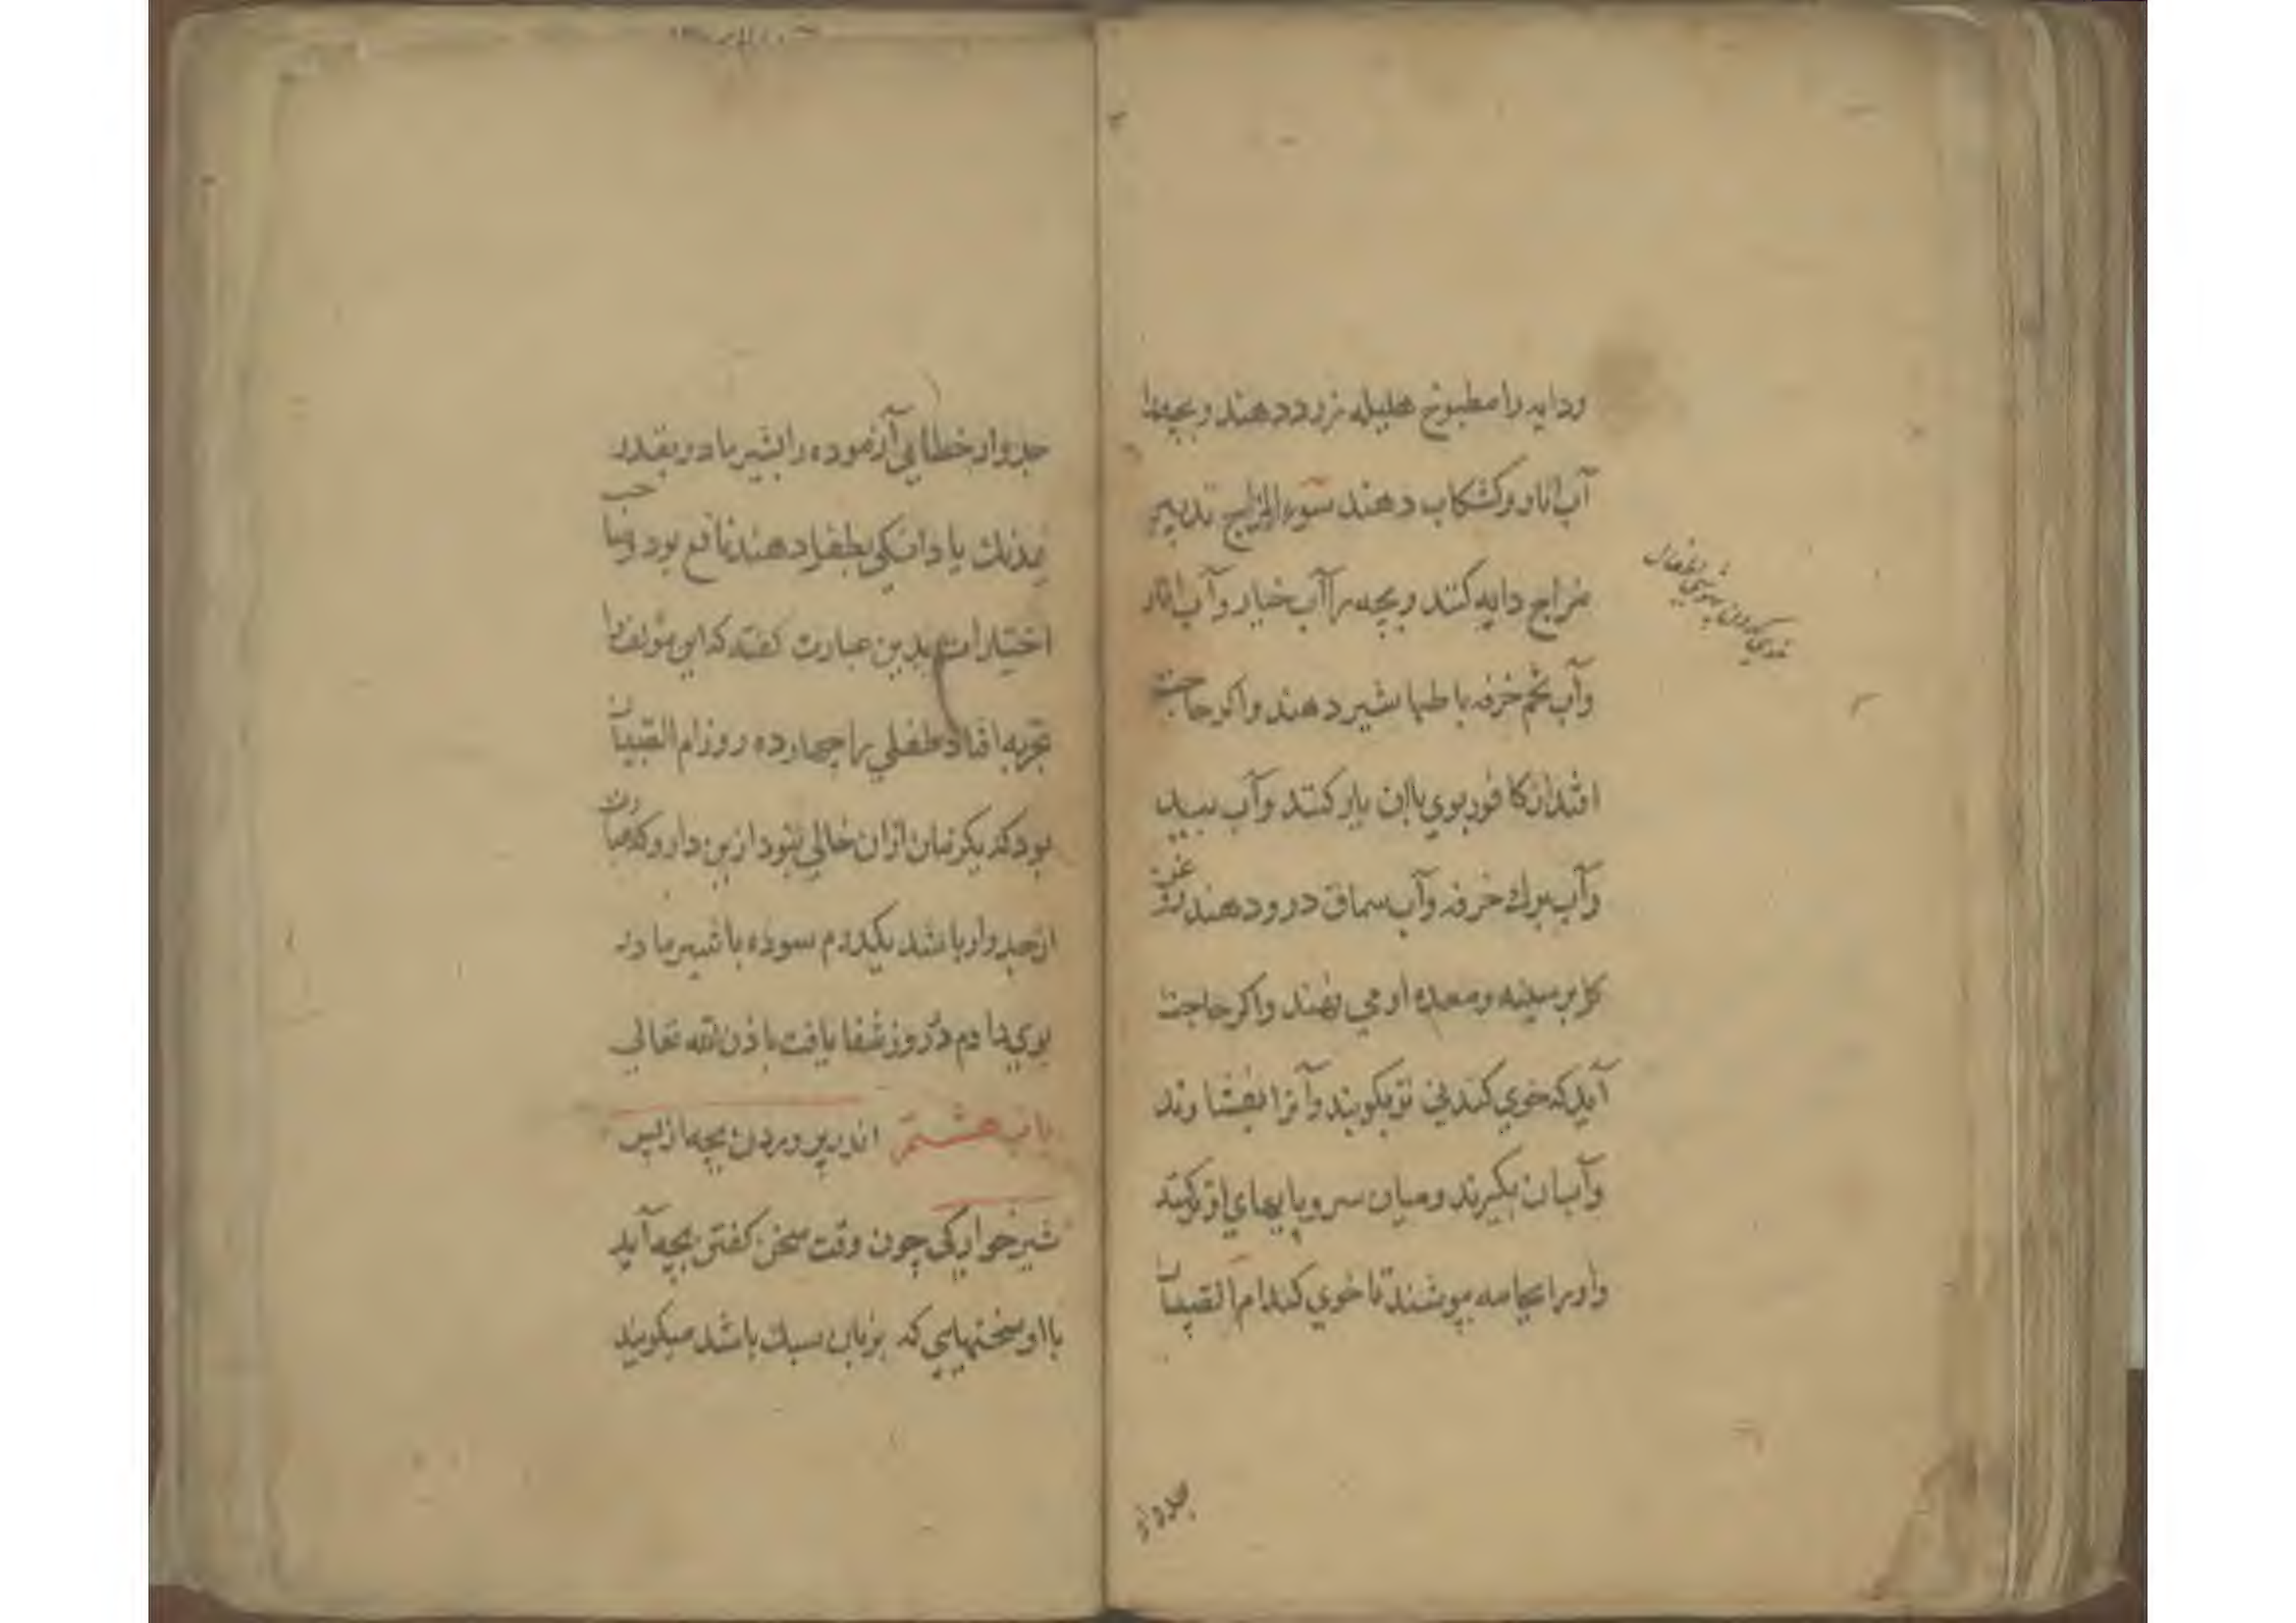 ودایه را مطبوخ هلیله زرد دهند و بچه را
آب انار و کشکاب دهند سوء المزاج تدبیر
مزاج دایه کنند و بچه را آب خیار و آب انار
وآب تخم خرفه با طباشیر دهند واکر حاجت
افتد از کافور بوی با ان یار کنند وآب سبید
وآب برك خرفه وآب سماق درو دهند
بر سینه و معده او می نهند واکر حاجت
آید که خوی کند نی تر بکوبند وآنرا بفشارند
وآب ان بکیرند و میان سر و پایهای او تر کنند
واو را بجامه بپوشند تا خوی کند ام الصبیان
خوی کردن
جدوار
جدوار خطایی آزموده را بشیر مادر بقدر
نیمدنك یا دانکی بطفل دهند نافع بود وصاحب
اختیارات بدین عبارت کفته که این مؤلف را
تجربه افتاد طفلی را چهارده روز ام الصبیان
بود که یکزمان ازان خالی نبود ازین دارو که مراد
از جدوار باشد یکدرم سوده با شیر مادر
بوی دادم در روز شفا یافت باذن الله تعالی
باب هشتم اندر پروردن بچه از پس
شیرخوارکی چون وقت سخن کفتن بچه آید
با او سخنهایی که بزبان سبك باشد میکویند